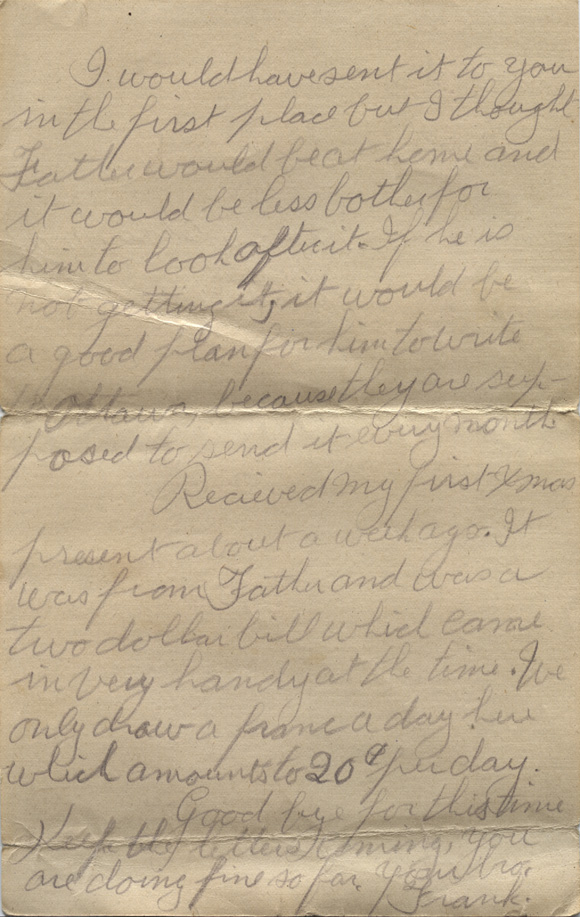 I would have sent it to you
in the first place but I thought
Father would be at home and
it would be less bother for
him to look after it. If he is
not getting it, it would be
a good plan for him to write
to Ottawa, because they are sup-
posed to send it every month
Recieved my first Xmas
present about a week ago. It
was from Father and was a
two dollar bill which came
in very handy at the time. We
only draw a franc a day here
which amounts to 20¢ per day.
Good bye for this time
Keep the letters coming, you
are doing fine so far. Your bro.
Frank.